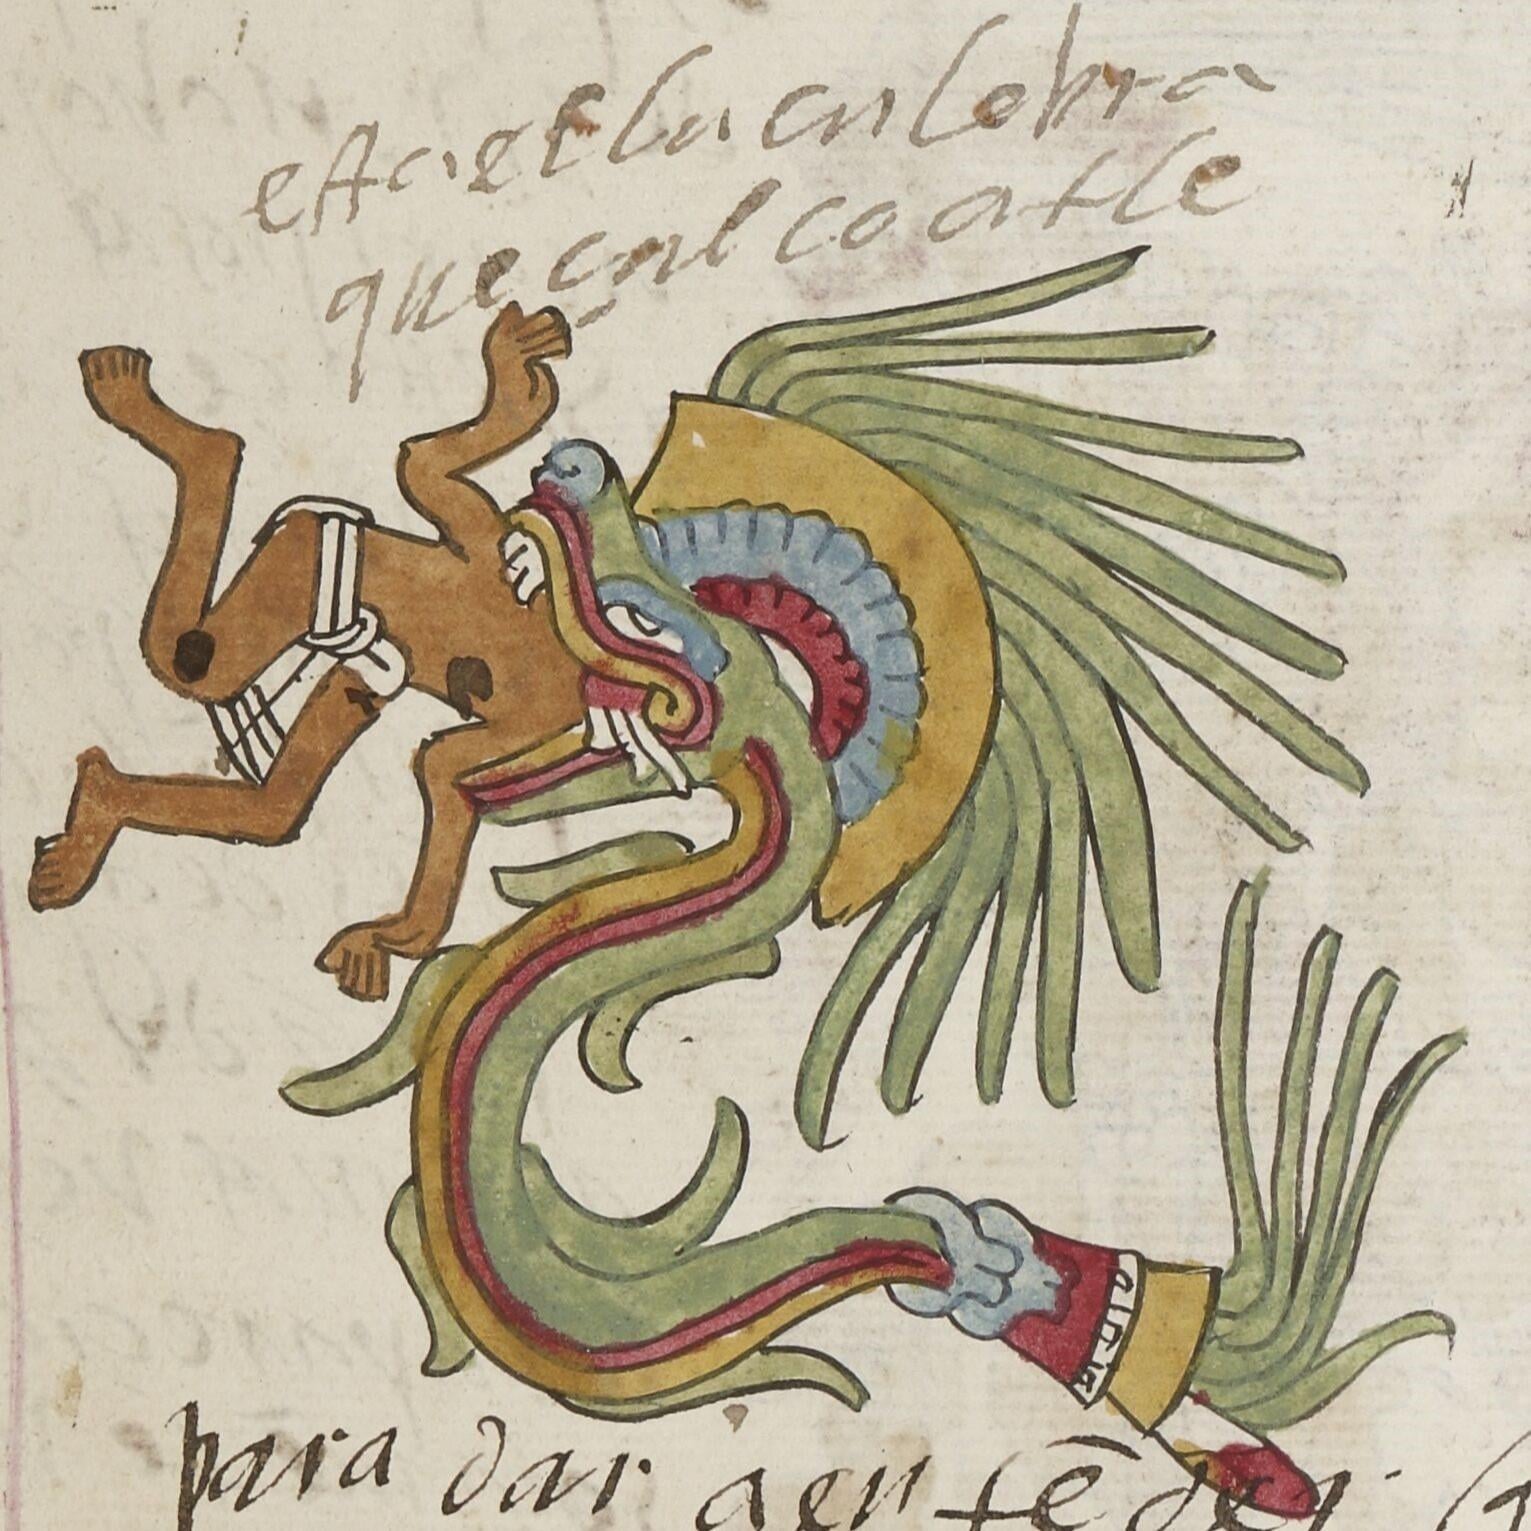 esta es la culebra
queçalcoatle
para dar a entẽder